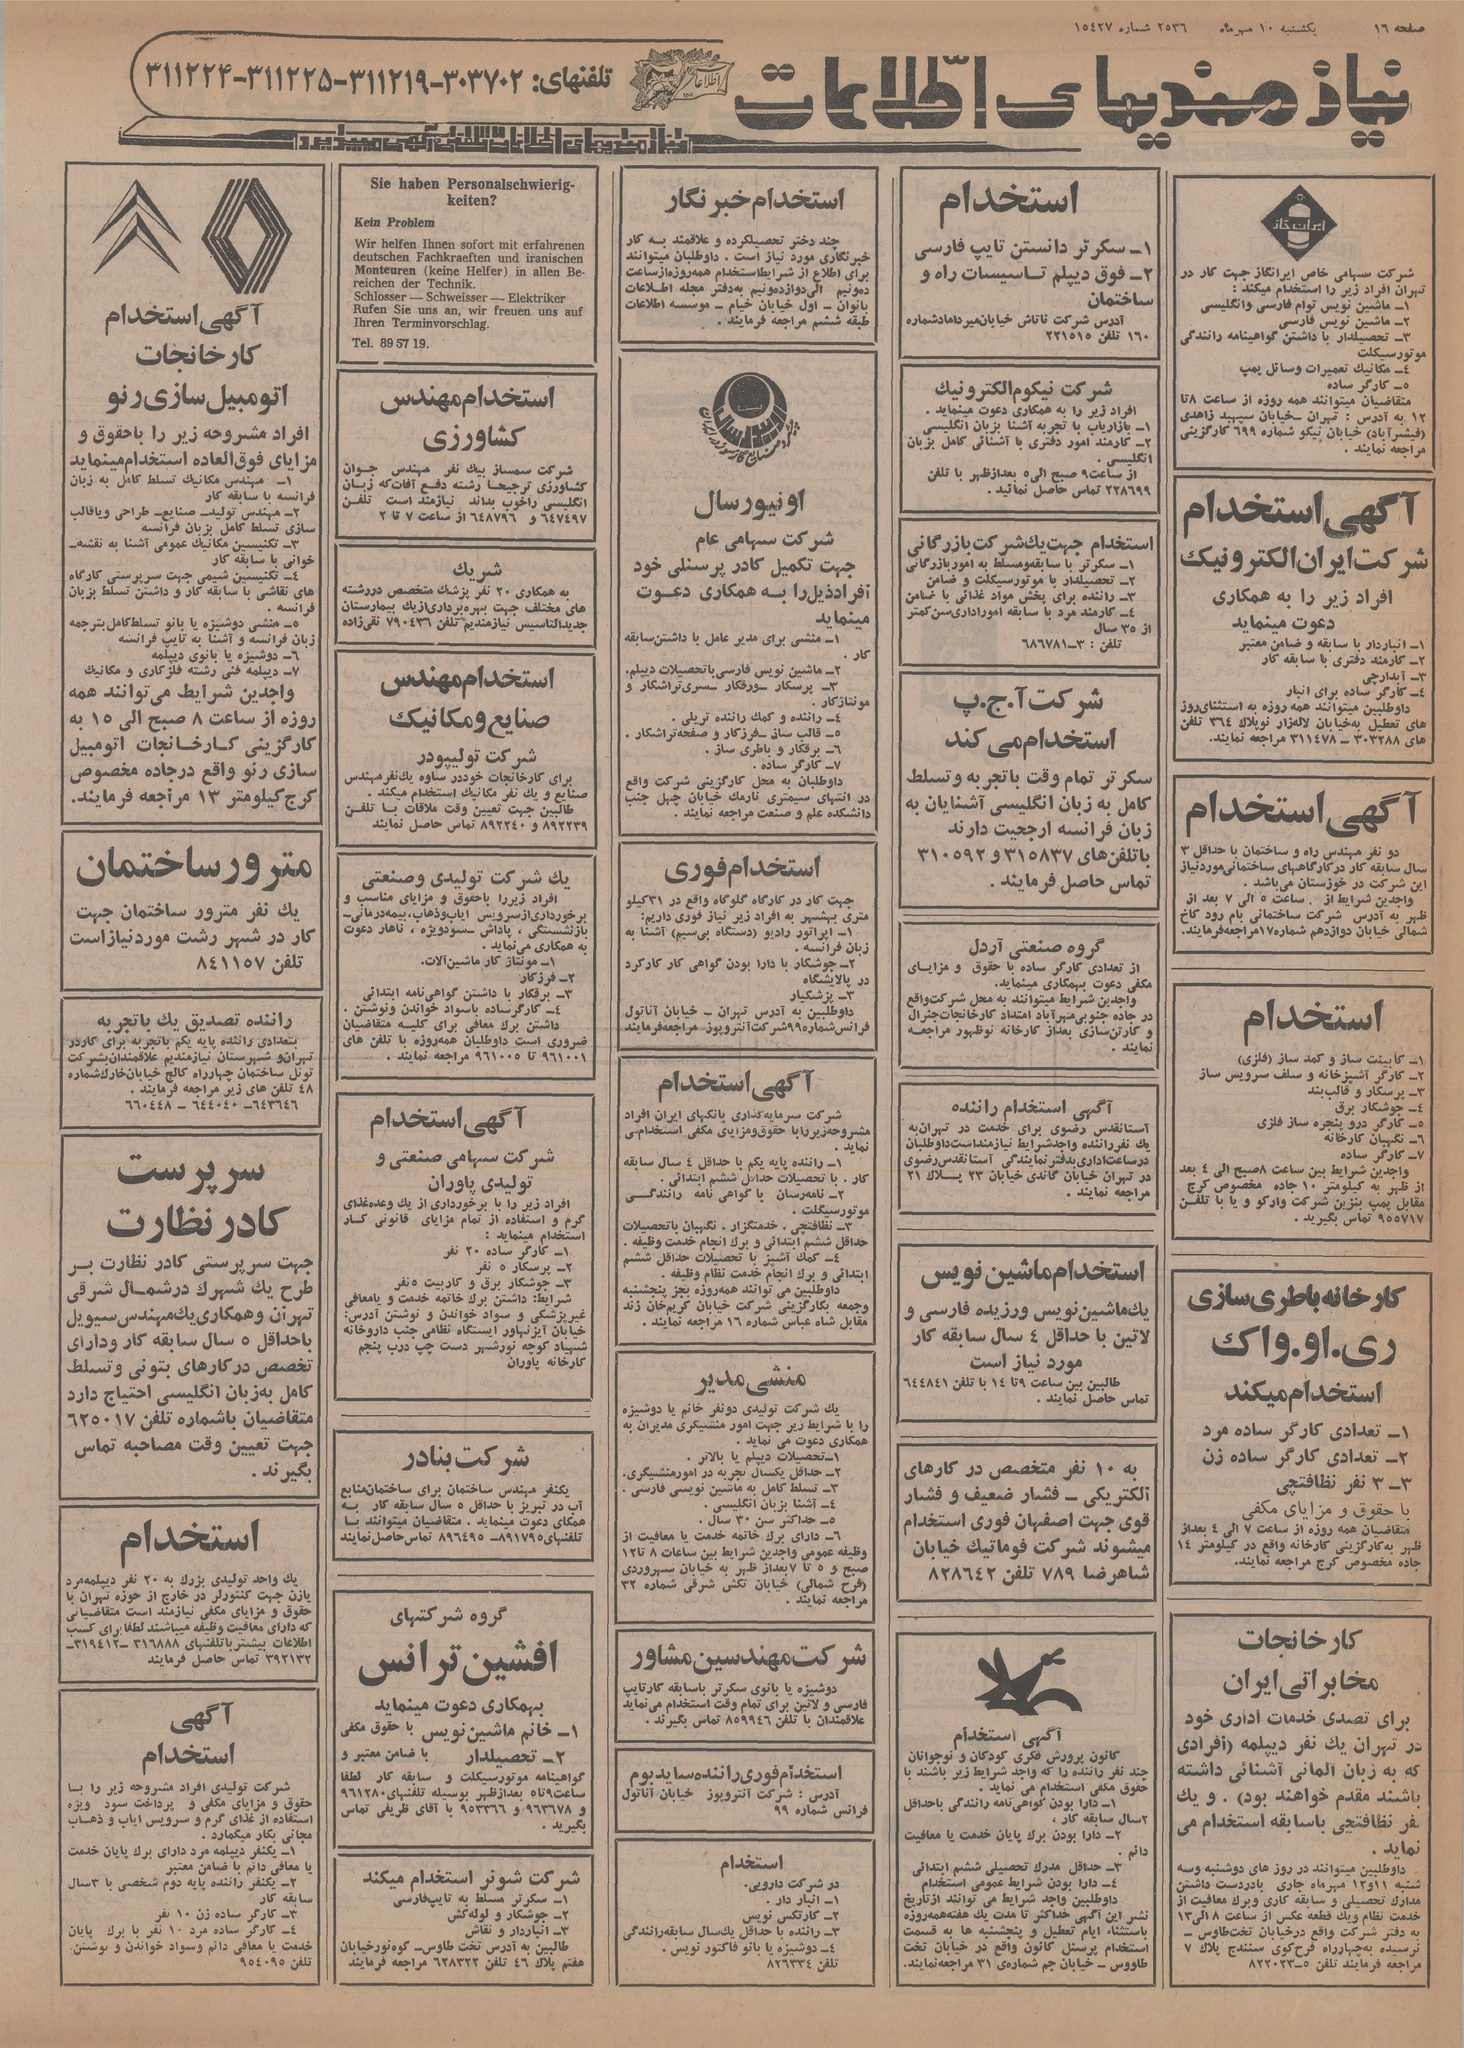 صفحه ۱۶
یکشنبه ۱۰ مهرماه ۲۵۳۶ شماره ۱۵۴۲۷
نیازمندیهای اطلاعات
تلفنهای: ۳۰۳۷۰۲-۳۱۱۲۱۹-۳۱۱۲۲۵-۳۱۱۲۲۴
نیازمندیهای اطلاعات تلفنی آگهی میپذیرد
ایران گاز
شرکت سهامی خاص ایرانگاز جهت کار در
تهران افراد زیر را استخدام میکند :
۱ــ ماشین نویس توام فارسی وانگلیسی
۲ــ ماشین نویس فارسی
۳ــ تحصیلدار با داشتن گواهینامه رانندگی
موتورسیکلت
۴ــ مکانیک تعمیرات وسائل پمپ
۵ــ کارگر ساده
متقاضیان میتوانند همه روزه از ساعت ۸تا
۱۲ به آدرس : تهران ــخیابان سپهبد زاهدی
(فیشرآباد) خیابان نیکو شماره ۶۹۹ کارگزینی
مراجعه نمایند .
آگهی استخدام
شرکت ایران الکترونیک
افراد زیر را به همکاری
دعوت مینماید
۱ــ انباردار با سابقه و ضامن معتبر
۲ــ کارمند دفتری با سابقه کار
۳ــ آبدارچی
۴ــ کارگر ساده برای انبار
داوطلبین میتوانند همه روزه به استثنای روز
های تعطیل به خیابان لاله‌زار نوپلاک ۳۶۴ تلفن
های ۳۰۳۲۸۸ ــ ۳۱۱۴۷۸ مراجعه نمایند.
آگهی استخدام
دو نفر مهندس راه و ساختمان با حداقل ۳
سال سابقه کار در کارگاههای ساختمانی موردنیاز
این شرکت در خوزستان می‌باشد .
واجدین شرایط از ساعت ۵ الی ۷ بعد از
ظهر به آدرس شرکت ساختمانی بام رود کاخ
شمالی خیابان دوازدهم شماره ۱۷ مراجعه فرمایند.
استخدام
۱ــ کابینت ساز و کمد ساز (فلزی)
۲ــ کارگر آشپزخانه و سلف سرویس ساز
۳ــ پرسکار و قالب‌بند
۴ــ جوشکار برق
۵ــ کارگر درو پنجره ساز فلزی
۶ــ نگهبان کارخانه
۷ــ کارگر ساده
واجدین شرایط بین ساعت ۸صبح الی ۴ بعد
از ظهر به کیلومتر ۱۰ جاده مخصوص کرج
مقابل پمپ بنزین شرکت وارکو و یا با تلفن
۹۵۵۷۱۷ تماس بگیرید .
کارخانه باطری سازی
ری.او.واک
استخدام میکند
۱ــ تعدادی کارگر ساده مرد
۲ــ تعدادی کارگر ساده زن
۳ــ ۳ نفر نظافتچی
با حقوق و مزایای مکفی
متقاضیان همه روزه از ساعت ۷ الی ۴ بعداز
ظهر به کارگزینی کارخانه واقع در کیلومتر ۱۴
جاده مخصوص کرج مراجعه نمایند.
کارخانجات
مخابراتی ایران
برای تصدی خدمات اداری خود
در تهران یک نفر دیپلمه (افرادی
که به زبان آلمانی آشنائی داشته
باشند مقدم خواهند بود) . و یک
نفر نظافتچی باسابقه استخدام می
نماید .
داوطلبین میتوانند در روز های دوشنبه وسه
شنبه ۱۱و۱۲ مهرماه جاری بادردست داشتن
مدارک تحصیلی و سابقه کاری وبرک معافیت از
خدمت نظام ویک قطعه عکس از ساعت ۸ الی ۱۳
به دفتر شرکت واقع درخیابان تخت‌طاوس ــ
نرسیده به‌چهارراه فرح‌کوی سنندج پلاک ۷
مراجعه فرمایند تلفن ۵ــ۸۲۲۰۲۳
استخدام
۱ــ سکرتر دانستن تایپ فارسی
۲ــ فوق دیپلم تاسیسات راه و
ساختمان
آدرس شرکت تاتاش خیابان میردامادشماره
۱۶۰ تلفن ۲۲۱۵۱۵
شرکت نیکوم الکترونیک
افراد زیر را به همکاری دعوت مینماید .
۱ــ بازاریاب با تجربه آشنا بزبان انگلیسی
۲ــ کارمند امور دفتری با آشنائی کامل بزبان
انگلیسی .
از ساعت ۹ صبح الی ۵ بعدازظهر با تلفن
۲۲۸۶۹۹ تماس حاصل نمائید .
استخدام جهت یک شرکت بازرگانی
۱ــ سکرتر با سابقه ومسلط به امور بازرگانی
۲ــ تحصیلدار با موتورسیکلت و ضامن
۳ــ راننده برای پخش مواد غذائی با ضامن
۴ــ کارمند مرد با سابقه اموراداری سن کمتر
از ۳۵ سال
تلفن : ۳ــ۶۸۶۷۸۱
شرکت آ.ج.پ
استخدام می کند
سکرتر تمام وقت باتجربه وتسلط
کامل به زبان انگلیسی آشنایان به
زبان فرانسه ارجحیت دارند
باتلفن‌های ۳۱۵۸۳۷ و ۳۱۰۵۹۲
تماس حاصل فرمایند .
گروه صنعتی آردل
از تعدادی کارگر ساده با حقوق و مزایای
مکفی دعوت بهمکاری مینماید.
واجدین شرایط میتوانند به محل شرکت‌واقع
در جاده جنوبی‌مهرآباد امتداد کارخانجات‌جنرال
و کارتن‌سازی بعداز کارخانه نوظهور مراجعه
نمایند .
آگهی استخدام راننده
آستانقدس رضوی برای خدمت در تهران‌به
یک نفرراننده واجدشرایط نیازمنداست‌داوطلبان
درساعت‌اداری‌بدفترنمایندگی آستانقدس‌رضوی
در تهران خیابان گاندی خیابان ۲۳ پلاک ۲۱
مراجعه نمایند .
استخدام ماشین نویس
یک ماشین نویس ورزیده فارسی و
لاتین با حداقل ۴ سال سابقه کار
مورد نیاز است
طالبین بین ساعت ۹تا ۱۴ با تلفن ۶۴۴۸۴۱
تماس حاصل نمایند .
به ۱۰ نفر متخصص در کارهای
الکتریکی ــ فشار ضعیف و فشار
قوی جهت اصفهان فوری استخدام
میشوند شرکت فوماتیک خیابان
شاهرضا ۷۸۹ تلفن ۸۲۸۶۴۲
آگهی استخدام
کانون پرورش فکری کودکان و نوجوانان
چند نفر راننده را که واجد شرایط زیر باشند با
حقوق مکفی استخدام می نماید .
۱ــ دارا بودن گواهی‌نامه رانندگی باحداقل
۲سال سابقه کار ،
۲ــ دارا بودن برک پایان خدمت یا معافیت
دائم .
۳ــ حداقل مدرک تحصیلی ششم ابتدائی
۴ــ دارا بودن شرایط عمومی استخدام
داوطلبین واجد شرایط می توانند ازتاریخ
نشر این آگهی حداکثر تا مدت یک هفته‌همه‌روزه
باستثناء ایام تعطیل و پنجشنبه ها به قسمت
استخدام پرسنل کانون واقع در خیابان تخت
طاووس ــ خیابان جم شماره‌ی ۳۱ مراجعه‌نمایند.
استخدام خبرنگار
چند دختر تحصیلکرده و علاقمند به کار
خبرنگاری مورد نیاز است . داوطلبان میتوانند
برای اطلاع از شرایط‌استخدام همه‌روزه‌ازساعت
ده‌ونیم الی‌دوازده‌ونیم به‌دفتر مجله اطلاعات
بانوان ــ اول خیابان خیام ــ موسسه اطلاعات
طبقه ششم مراجعه فرمایند .
اونیورسال
شرکت سهامی عام
جهت تکمیل کادر پرسنلی خود
افرادذیل‌را به همکاری دعوت
مینماید
۱ــ منشی برای مدیر عامل با داشتن‌سابقه
کار .
۲ــ ماشین نویس فارسی باتحصیلات دیپلم.
۳ــ پرسکار ــورقکار ــسری‌تراشکار و
مونتاژکار .
۴ــ راننده و کمک راننده تریلی .
۵ــ قالب ساز ــ فرزکار و صفحه‌تراشکار .
۶ــ برقکار و باطری ساز .
۷ــ کارگر ساده .
داوطلبان به محل کارگزینی شرکت واقع
در انتهای سیمتری نارمک خیابان چهل جنب
دانشکده علم و صنعت مراجعه نمایند .
استخدام فوری
جهت کار در کارگاه گلوگاه واقع در ۳۱کیلو
متری بهشهر به افراد زیر نیاز فوری داریم:
۱ــ اپراتور رادیو (دستگاه بی‌سیم) آشنا به
زبان فرانسه .
۲ــ جوشکار با دارا بودن گواهی کار کارکرد
در پالایشگاه
۳ــ پزشکیار
داوطلبین به آدرس تهران ــ خیابان آناتول
فرانس شماره ۹۹ شرکت آنتروپوز مراجعه‌فرمایند
آگهی استخدام
شرکت سرمایه‌گذاری بانکهای ایران افراد
مشروحه‌زیررابا حقوق‌ومزایای مکفی استخدام‌می
نماید .
۱ــ راننده پایه یکم با حداقل ۴ سال سابقه
کار . با تحصیلات حداقل ششم ابتدائی .
۲ــ نامه‌رسان با گواهی نامه رانندگی
موتورسیکلت .
۳ــ نظافتچی . خدمتگزار . نگهبان باتحصیلات
حداقل ششم ابتدائی و برک انجام خدمت وظیفه .
۴ــ کمک آشپز با تحصیلات حداقل ششم
ابتدائی و برک انجام خدمت نظام وظیفه .
داوطلبین می توانند همه‌روزه بجز پنجشنبه
وجمعه بکارگزینی شرکت خیابان کریم‌خان زند
مقابل شاه عباس شماره ۱۶ مراجعه نمایند .
منشی مدیر
یک شرکت تولیدی دونفر خانم یا دوشیزه
را با شرایط زیر جهت امور منشیگری مدیران به
همکاری دعوت می نماید .
۱ــتحصیلات دیپلم یا بالاتر .
۲ــ حداقل یکسال تجربه در امورمنشیگری.
۳ــ تسلط کامل به ماشین نویسی فارسی .
۴ــ آشنا بزبان انگلیسی .
۵ــ حداکثر سن ۳۰ سال .
۶ــ دارای برک خاتمه خدمت یا معافیت از
وظیفه عمومی واجدین شرایط بین ساعات ۸ تا۱۲
صبح و ۵ تا ۷بعداز ظهر به خیابان سهروردی
(فرح شمالی) خیابان تکش شرقی شماره ۳۲
مراجعه نمایند .
شرکت مهندسین مشاور
دوشیزه یا بانوی سکرتر باسابقه کارتایپ
فارسی و لاتین برای تمام وقت استخدام می‌نماید
علاقمندان با تلفن ۸۵۹۹۴۶ تماس بگیرند .
استخدام فوری راننده ساید بوم
آدرس : شرکت آنتروپوز خیابان آناتول
فرانس شماره ۹۹
استخدام
در شرکت داروئی.
۱ــ انبار دار .
۲ــ کارتکس نویس
۳ــ راننده با حداقل یک‌سال سابقه‌رانندگی
۴ــ دوشیزه یا بانو فاکتور نویس .
تلفن ۸۲۶۳۳۴
Sie haben Personalschwierig-
keiten?
Kein Problem
Wir helfen Ihnen sofort mit erfahrenen
deutschen Fachkraeften und iranischen
Monteuren (keine Helfer) in allen Be-
reichen der Technik.
Schlosser — Schweisser — Elektriker
Rufen Sie uns an, wir freuen uns auf
Ihren Terminvorschlag.
Tel. 89 57 19.
استخدام مهندس
کشاورزی
شرکت سمساز بیک نفر مهندس جوان
کشاورزی ترجیحا رشته دفع آفات‌که زبان
انگلیسی راخوب بداند نیازمند است تلفن
۶۴۷۴۹۷ و ۶۴۸۷۹۶ از ساعت ۷ تا ۲
شریک
به همکاری ۲۰ نفر پزشک متخصص دررشته
های مختلف جهت بهره‌برداری‌ازیک بیمارستان
جدیدالتاسیس نیازمندیم تلفن ۷۹۰۴۳۶ نقی‌زاده
استخدام مهندس
صنایع و مکانیک
شرکت تولیپودر
برای کارخانجات خوددر ساوه یک‌نفرمهندس
صنایع و یک نفر مکانیک استخدام میکند .
طالبین جهت تعیین وقت ملاقات با تلفن
۸۹۲۲۳۹ و ۸۹۲۲۴۰ تماس حاصل نمایند
یک شرکت تولیدی وصنعتی
افراد زیررا باحقوق و مزایای مناسب و
برخورداری‌ازسرویس ایاب‌وذهاب،بیمه‌درمانی‌ــ
بازنشستگی ، پاداش ــسودویژه ، ناهار دعوت
به همکاری می‌نماید .
۱ــ مونتاژ کار ماشین‌آلات.
۲ــ فرزکار
۳ــ برقکار با داشتن گواهی‌نامه ابتدائی
۴ــ کارگرساده باسواد خواندن ونوشتن .
داشتن برک معافی برای کلیه متقاضیان
ضروری است داوطلبان همه‌روزه با تلفن های
۹۶۱۰۰۱ تا ۹۶۱۰۰۵ مراجعه نمایند .
آگهی استخدام
شرکت سهامی صنعتی و
تولیدی پاوران
افراد زیر را با برخورداری از یک وعده‌غذای
گرم و استفاده از تمام مزایای قانونی کار
استخدام مینماید :
۱ــ کارگر ساده ۲۰ نفر
۲ــ پرسکار ۵ نفر
۳ــ جوشکار برق و کاربیت ۵نفر
شرایط: داشتن برک خاتمه خدمت و یامعافی
غیرپزشکی و سواد خواندن و نوشتن آدرس:
خیابان آیزنهاور ایستگاه نظامی جنب داروخانه
شهیاد کوچه نورشهر دست چپ درب پنجم
کارخانه پاوران
شرکت بنادر
یکنفر مهندس ساختمان برای ساختمان‌منابع
آب در تبریز با حداقل ۵ سال سابقه کار به
همکای دعوت مینماید . متقاضیان میتوانند با
تلفنهای ۸۹۱۷۹۵ــ ۸۹۶۴۹۵ تماس حاصل‌نمایند
گروه شرکتهای
افشین ترانس
بهمکاری دعوت مینماید
۱ــ خانم ماشین نویس با حقوق مکفی
۲ــ تحصیلدار با ضامن معتبر و
گواهینامه موتورسیکلت و سابقه کار لطفا
ساعت۹تا۵ بعدازظهر بوسیله تلفنهای ۹۶۱۲۸۰
و ۹۶۳۶۷۸ و ۹۵۳۳۶۶ با آقای ظریفی تماس
بگیرید .
شرکت شونر استخدام میکند
۱ــ سکرتر مسلط به تایپ‌فارسی
۲ــ جوشکار و لوله‌کش
۳ــ انباردار و نقاش
طالبین به آدرس تخت طاوس ــ کوه‌نورخیابان
هفتم پلاک ۴۶ تلفن ۶۲۸۳۲۲ مراجعه فرمایند
آگهی استخدام
کارخانجات
اتومبیل سازی رنو
افراد مشروحه زیر را باحقوق و
مزایای فوق العاده استخدام مینماید
۱ــ مهندس مکانیک تسلط کامل به زبان
فرانسه با سابقه کار
۲ــ مهندس تولیدــ صنایع ــ طراحی وباقالب
سازی تسلط کامل بزبان فرانسه
۳ــ تکنیسین مکانیک عمومی آشنا به نقشه‌ــ
خوانی با سابقه کار
۴ــ تکنیسین شیمی جهت سرپرستی کارگاه
های نقاشی با سابقه کار و داشتن تسلط بزبان
فرانسه .
۵ــ منشی دوشیزه یا بانو تسلط‌کامل‌بترجمه
زبان فرانسه و آشنا به تایپ فرانسه
۶ــ دوشیزه یا بانوی دیپلمه
۷ــ دیپلمه فنی رشته فلزکاری و مکانیک
واجدین شرایط می توانند همه
روزه از ساعت ۸ صبح الی ۱۵ به
کارگزینی کارخانجات اتومبیل
سازی رنو واقع درجاده مخصوص
کرج کیلومتر ۱۳ مراجعه فرمایند.
مترور ساختمان
یک نفر مترور ساختمان جهت
کار در شهر رشت مورد نیاز است
تلفن ۸۴۱۱۵۷
راننده تصدیق یک باتجربه
بتعدادی راننده پایه یکم باتجربه برای کاردر
تهران‌و شهرستان نیازمندیم علاقمندان‌بشرکت
تونل ساختمان چهارراه کالج خیابان‌خارک‌شماره
۴۸ تلفن های زیر مراجعه فرمایند .
۶۴۳۶۴۶ــ ۶۴۴۰۴۰ ــ ۶۶۰۴۴۸
سرپرست
کادر نظارت
جهت سرپرستی کادر نظارت بر
طرح یک شهرک درشمال شرقی
تهران وهمکاری‌یک‌مهندس‌سیویل
باحداقل ۵ سال سابقه کار ودارای
تخصص درکارهای بتونی وتسلط
کامل به‌زبان انگلیسی احتیاج دارد
متقاضیان باشماره تلفن ۶۲۵۰۱۷
جهت تعیین وقت مصاحبه تماس
بگیرند .
استخدام
یک واحد تولیدی بزرک به ۲۰ نفر دیپلمه‌مرد
یازن جهت کنتورلر در خارج از حوزه تهران با
حقوق و مزایای مکفی نیازمند است متقاضیانی
که دارای معافیت وظیفه میباشند لطفا برای کسب
اطلاعات بیشتر باتلفنهای ۳۱۶۸۸۸ ــ۳۱۹۴۱۲ــ
۳۹۲۱۳۲ تماس حاصل فرمایند
آگهی
استخدام
شرکت تولیدی افراد مشروحه زیر را با
حقوق و مزایای مکفی و پرداخت سود ویژه
استفاده از غذای گرم و سرویس ایاب و ذهاب
مجانی بکار میگمارد .
۱ــ یکنفر دیپلمه مرد دارای برک پایان خدمت
یا معافی دائم با ضامن معتبر
۲ــ یکنفر راننده پایه دوم شخصی با ۳سال
سابقه کار
۳ــ کارگر ساده زن ۱۰ نفر
۴ــ کارگر ساده مرد ۱۰ نفر با برک پایان
خدمت یا معافی دائم وسواد خواندن و نوشتن.
تلفن ۹۵۴۰۹۵